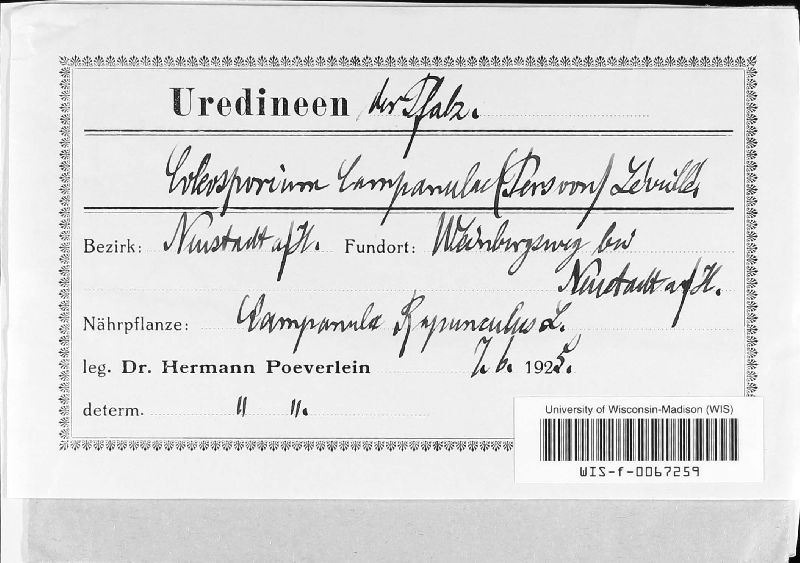 Uredineen der Pfalz.
Coleosporium Campanulae (Persoon) Léveillé.
Bezirk: Neustadt a/H. Fundort: Weinbergsweg bei
Neustadt a/H.
Nährpflanze: Campanula Rapunculus L.
leg. Dr. Hermann Poeverlein 7. 6. 1925.
determ. " ".
University of Wisconsin-Madison (WIS)
WIS-f-0067259